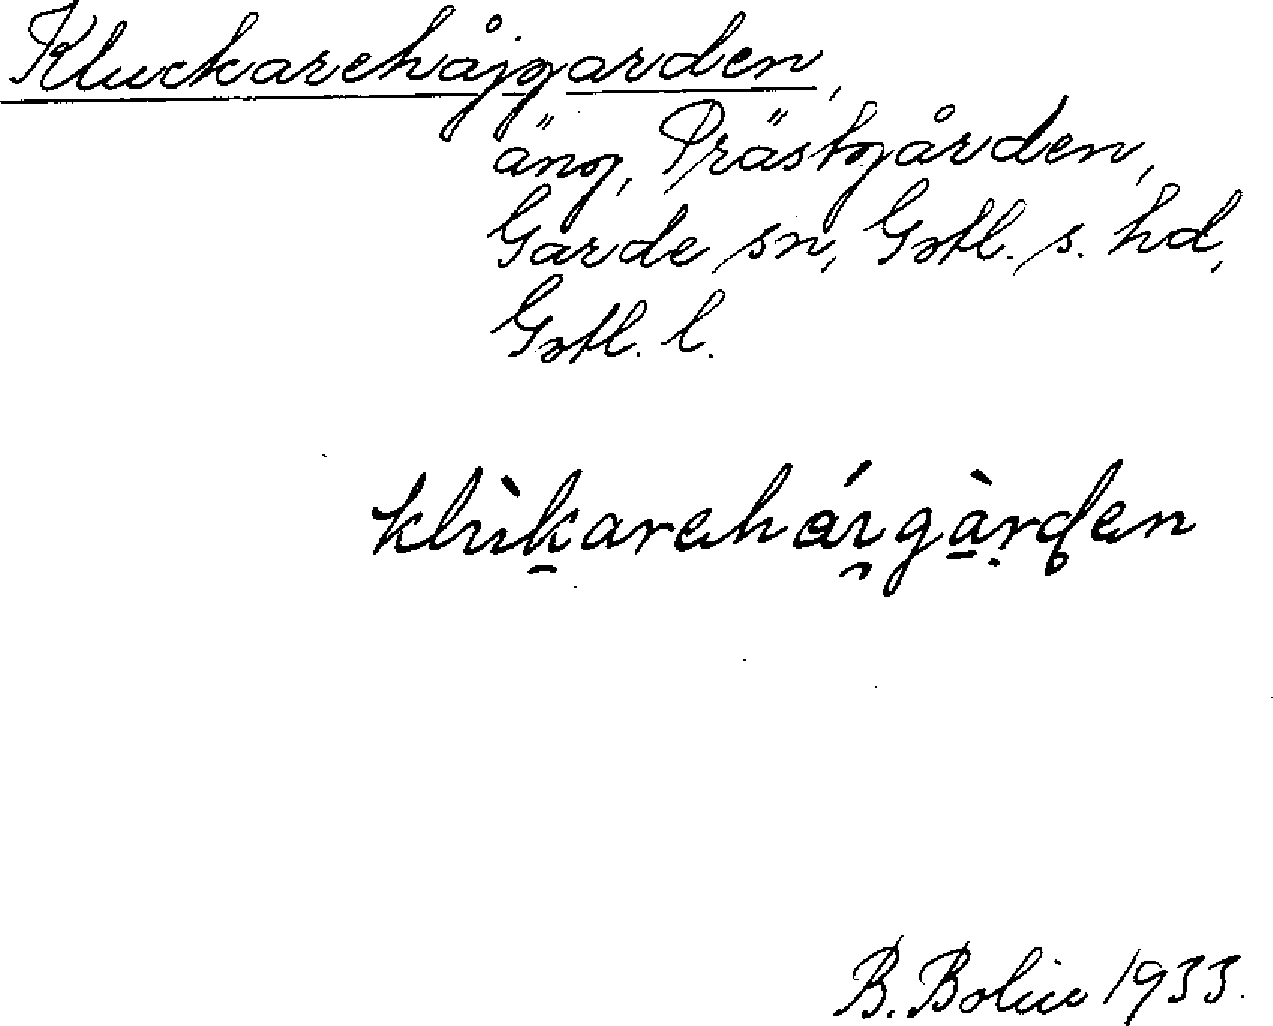 Kluckarehåjgarden,
äng, Prästgården,
Garde sn, Gotl. s. hd,
Gotl. l.
klùk̯areháı̯gàrden
B. Bolin 1933.